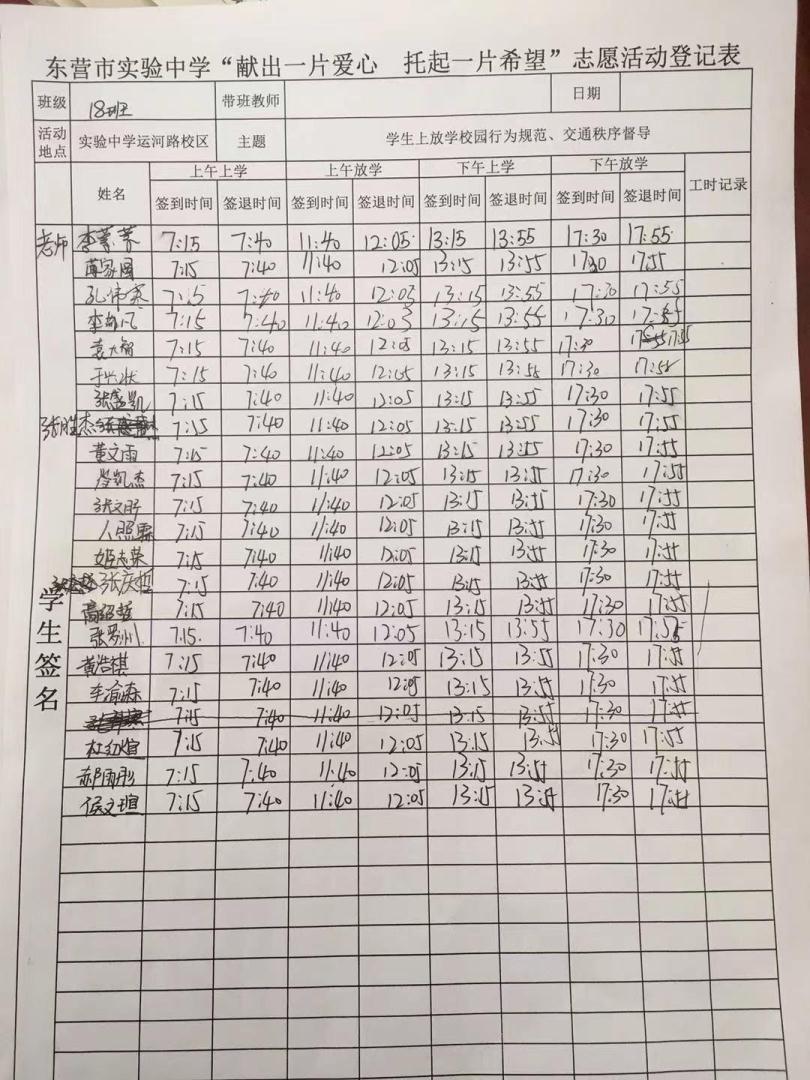 东营市实验中学“献出一片爱心 托起一片希望”志愿活动登记表
班级 18班 带班教师 日期
活动地点 实验中学运河路校区 主题 学生上放学校园行为规范、交通秩序督导
姓名 上午上学 上午放学 下午上学 下午放学 工时记录
签到时间 签退时间 签到时间 签退时间 签到时间 签退时间 签到时间 签退时间
老师 李 7:15 7:40 11:40 12:05 13:15 13:55 17:30 17:55
7:15 7:40 11:40 12:05 13:15 13:55 17:30 17:55
孔 7:15 7:40 11:40 12:05 13:15 13:55 17:30 17:55
李 7:15 7:40 11:40 12:05 13:15 13:55 17:30 17:55
袁大智 7:15 7:40 11:40 12:05 13:15 13:55 17:30 17:55
于兴状 7:15 7:40 11:40 12:05 13:15 13:55 17:30 17:55
张盛凯 7:15 7:40 11:40 12:05 13:15 13:55 17:30 17:55
张胜杰 7:15 7:40 11:40 12:05 13:15 13:55 17:30 17:55
黄文雨 7:15 7:40 11:40 12:05 13:15 13:55 17:30 17:55
凯杰 7:15 7:40 11:40 12:05 13:15 13:55 17:30 17:55
张文 7:15 7:40 11:40 12:05 13:15 13:55 17:30 17:55
照霖 7:15 7:40 11:40 12:05 13:15 13:55 17:30 17:55
姬志荣 7:15 7:40 11:40 12:05 13:15 13:55 17:30 17:55
学生签名 张庆哲 7:15 7:40 11:40 12:05 13:15 13:55 17:30 17:55
高绍哲 7:15 7:40 11:40 12:05 13:15 13:55 17:30 17:55
张 7:15 7:40 11:40 12:05 13:15 13:55 17:30 17:55
黄浩祺 7:15 7:40 11:40 12:05 13:15 13:55 17:30 17:55
李渝森 7:15 7:40 11:40 12:05 13:15 13:55 17:30 17:55
7:15 7:40 11:40 12:05 13:15 13:55 17:30 17:55
杜 煊 7:15 7:40 11:40 12:05 13:15 13:55 17:30 17:55
郝雨彤 7:15 7:40 11:40 12:05 13:15 13:55 17:30 17:55
侯文瑄 7:15 7:40 11:40 12:05 13:15 13:55 17:30 17:55